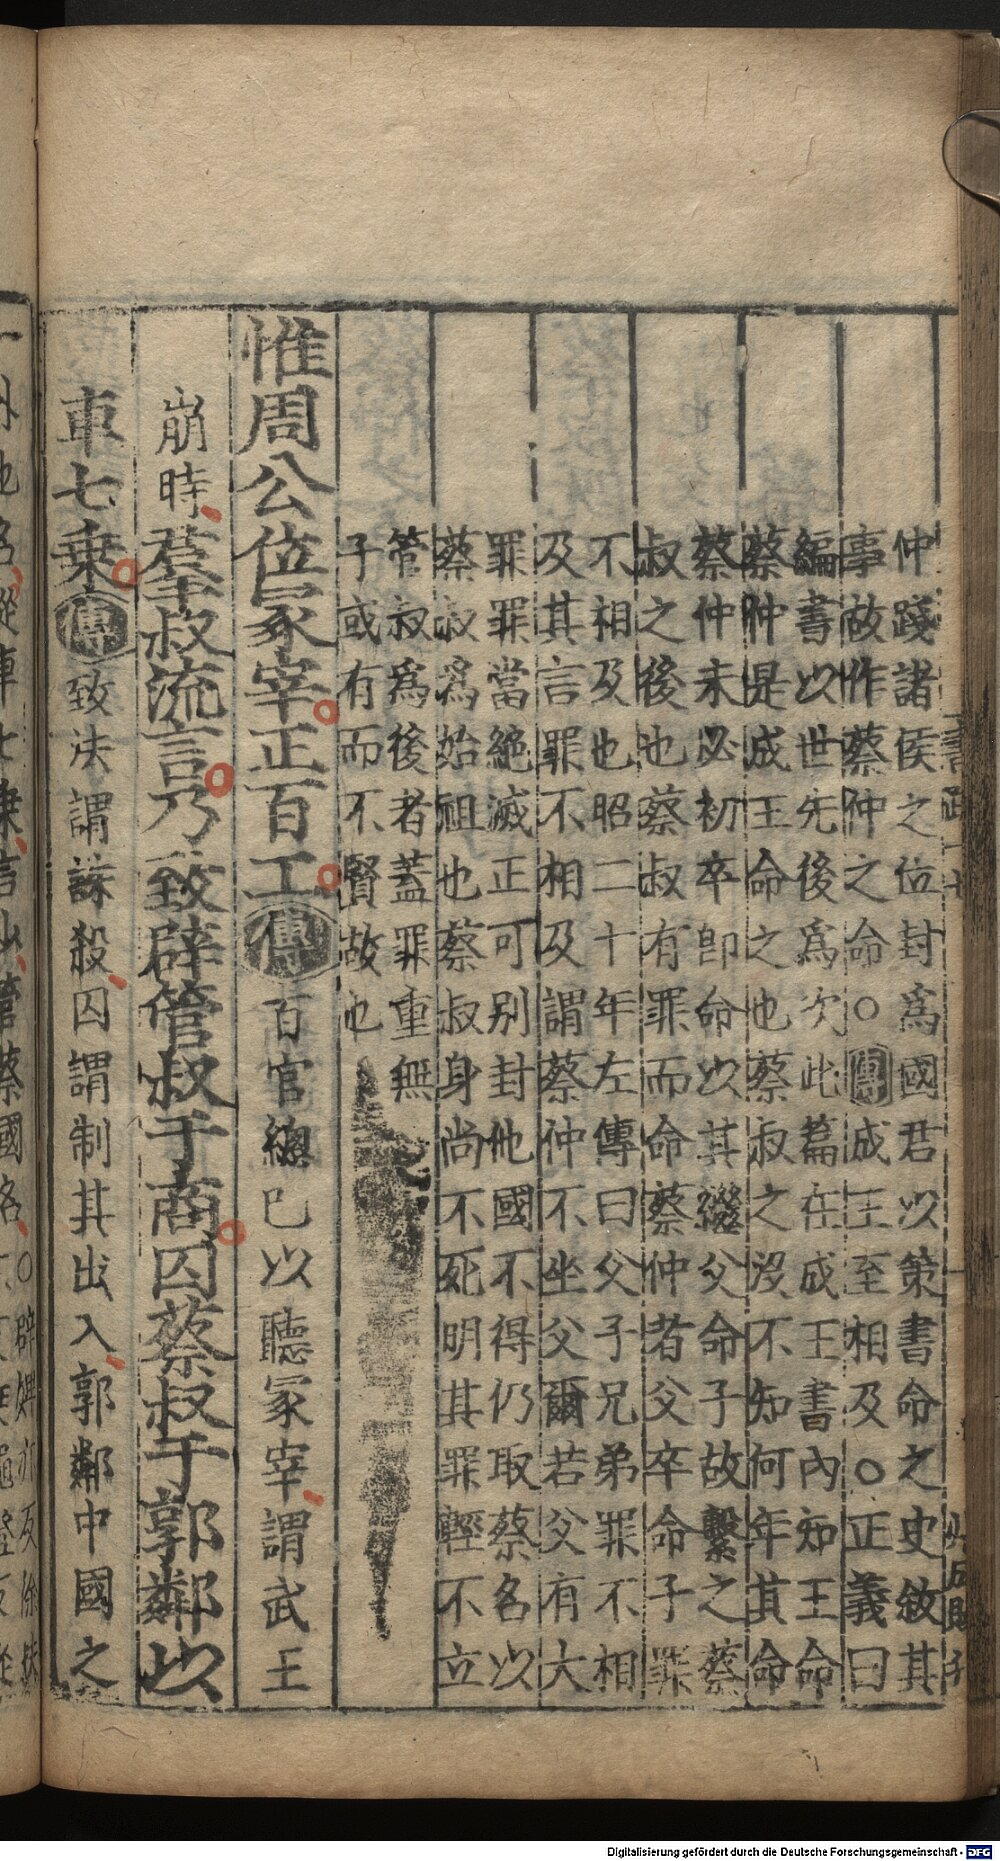 仲踐諸侯之位封爲國君以策書命之史敘其
事故作蔡仲之命○傳成王至相及○正義曰
編書以世先後爲次此篇在成王書內知王命
蔡仲是成王命之也蔡叔之没不知何年其命
蔡仲未必初卒卽命以其繼父命子故繫之蔡
叔之後也蔡叔有罪而命蔡仲者父卒命子罪
不相及也昭二十年左傳曰父子兄弟罪不相
及其言罪不相及謂蔡仲不坐父爾若父有大
罪罪當絶滅正可别封他國不得仍取蔡名以
蔡叔爲始祖也蔡叔身尚不死明其罪輕不立
管叔爲後者蓋罪重無
子或有而不賢故也
惟周公位冢宰正百工傳百官總己以聽冢宰謂武王
崩時羣叔流言乃致辟管叔于商囚蔡叔于郭鄰以
車七乘傳致法謂誅殺囚謂制其出入郭鄰中國之
Digitalisierung gefördert durch die Deutsche Forschungsgemeinschaft - DFG